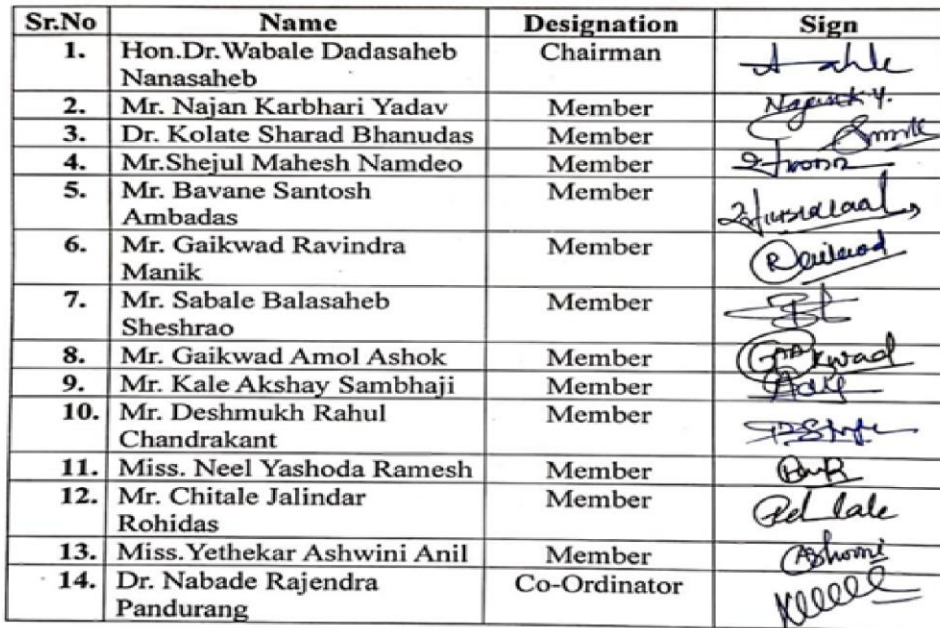 Sr.No Name Designation Sign
1. Hon.Dr.Wabale Dadasaheb Chairman
Nanasaheb
2. Mr. Najan Karbhari Yadav Member
3. Dr. Kolate Sharad Bhanudas Member
4. Mr.Shejul Mahesh Namdeo Member
5. Mr. Bavane Santosh Member
Ambadas
6. Mr. Gaikwad Ravindra Member
Manik
7. Mr. Sabale Balasaheb Member
Sheshrao
8. Mr. Gaikwad Amol Ashok Member
9. Mr. Kale Akshay Sambhaji Member
10. Mr. Deshmukh Rahul Member
Chandrakant
11. Miss. Neel Yashoda Ramesh Member
12. Mr. Chitale Jalindar Member
Rohidas
13. Miss.Yethekar Ashwini Anil Member
14. Dr. Nabade Rajendra Co-Ordinator
Pandurang